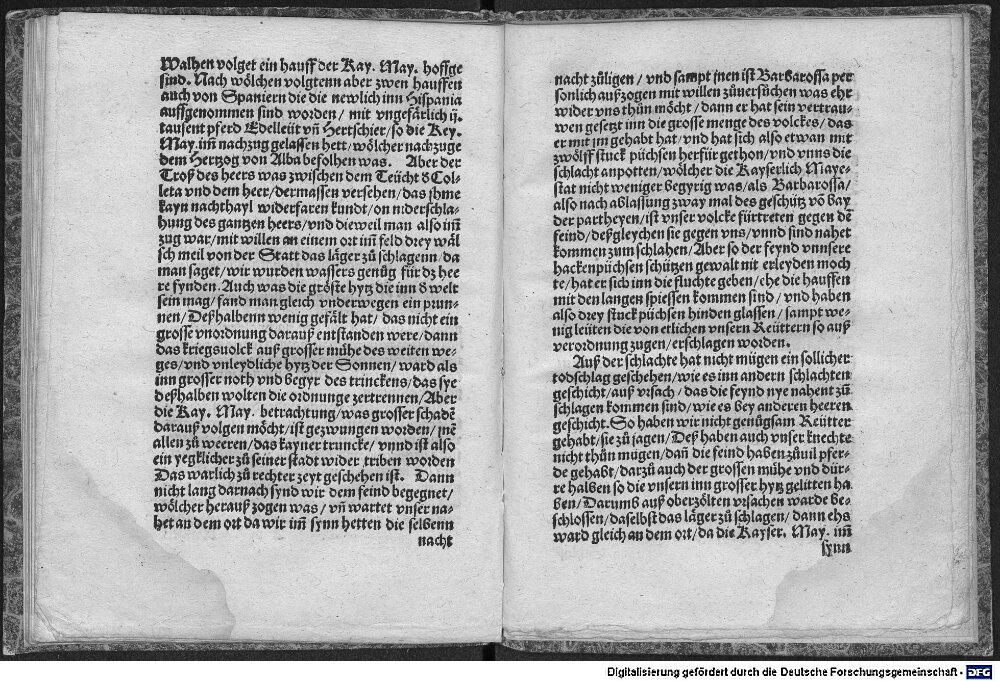 Walhen volget ein hauff der Kay. May. hoffge
sind. Nach wölchen volgtenn aber zwen hauffen
auch von Spaniern die die newlich inn Hispania
auffgenommen sind worden/ mit vngefärlich ij.
tausent pferd Edelleüt vñ Hertschier/ so die Key.
May. im̃ nachzug gelassen hett/ wölcher nachzuge
dem Hertzog von Alba befolhen was. Aber der
Troß des heers was zwischen dem Teücht d Col-
leta vnd dem heer/ dermassen versehen/ das jhme
kayn nachthayl widerfaren kundt/ on niderschla-
hung des gantzen heers/ vnd dieweil man also im̃
zug war/ mit willen an einem ort im̃ feld drey wäl
sch meil von der Statt das läger zů schlagenn/ da
man saget/ wir wurden wassers genůg für dz hee
re fynden. Auch was die gröste hytz die inn d welt
sein mag/ fand man gleich vnderwegen ein prun-
nen/ Deßhalbenn wenig gefält hat/ das nicht ein
grosse vnordnung darauß entstanden were/ dann
das kriegsuolck auß grosser mühe des weiten we-
ges/ vnd vnleydliche hytz der Sonnen/ ward als
inn grosser noth vnd begyr des trinckens/ das sye
deßhalben wolten die ordnunge zertrennen/ Aber
die Kay. May. betrachtung/ was grosser schadẽ
darauß volgen möcht/ ist gezwungen worden/ jnẽ
allen zů weeren/ das kayner truncke/ vnnd ist also
ein yegklicher zů seiner stadt wider triben worden
Das warlich zů rechter zeyt geschehen ist. Dann
nicht lang darnach synd wir dem feind begegnet/
wölcher herauß zogen was/ vñ wartet vnser na-
het an dem ort da wir im̃ synn hetten die selbenn
nacht
nacht zůligen/ vnd sampt jnen ist Barbarossa per
sönlich außzogen mit willen zůnersůchen was ehr
wider vns thůn möcht/ dann er hat sein vertrau-
wen gesetzt inn die grosse menge des volckes/ das
er mit jm gehabt hat/ vnd hat sich also etwan mit
zwölff stuck püchsen herfür gethon/ vnd vnns die
schlacht anpotten/ wölcher die Kayserlich Maye-
stat nicht weniger begyrig was/ als Barbarossa/
also nach ablassung zway mal des geschütz võ bay
der partheyen/ ist vnser volcke fürtreten gegen dẽ
feind/ deßgleychen sie gegen vns/ vnnd sind nahet
kommen zum schlahen/ Aber so der feynd vnnsere
hackenpüchsen schützen gewalt nit erleyden moch
te/ hat er sich inn die fluchte geben/ ehe die hauffen
mit den langen spiessen kommen sind/ vnd haben
also drey stuck püchsen hinden glassen/ sampt we-
nig leüten die von etlichen vnsern Reüttern so auß
verordnung zugen/ erschlagen worden.
Auß der schlachte hat nicht mügen ein sollicher
todschlag geschehen/ wie es inn andern schlachten
geschicht/ auß vrsach/ das die feynd nye nahent zů
schlagen kommen sind/ wie es bey anderen heeren
geschicht. So haben wir nicht genůgsam Reütter
gehabt/ sie zů jagen/ Deß haben auch vnser knechte
nicht thůn mügen/ dañ die feind haben zůuil pfer-
de gehabt/ darzů auch der grossen mühe vnd dür-
re halben so die vnsern inn grosser hytz gelitten ha
ben/ Darumb auß oberzölten vrsachen warde be-
schlossen/ daselbst das läger zů schlagen/ dann ehs
ward gleich an dem ort/ da die Kayser. May. im̃
synn
Digitalisierung gefördert durch die Deutsche Forschungsgemeinschaft - DFG